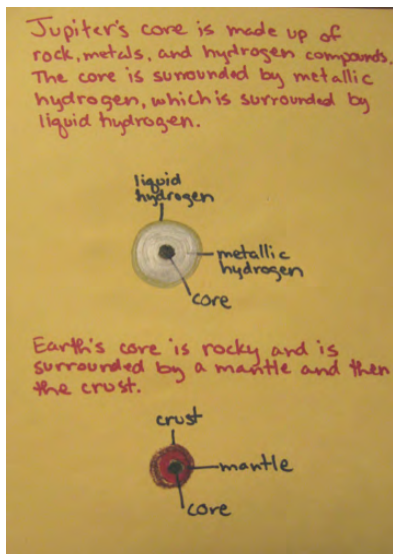 Jupiter's core is made up of
rock, metals, and hydrogen compounds.
The core is surrounded by metallic
hydrogen, which is surrounded by
liquid hydrogen.
liquid
hydrogen
metallic
hydrogen
core
Earth's core is rocky and is
surrounded by a mantle and then
the crust.
crust
mantle
core